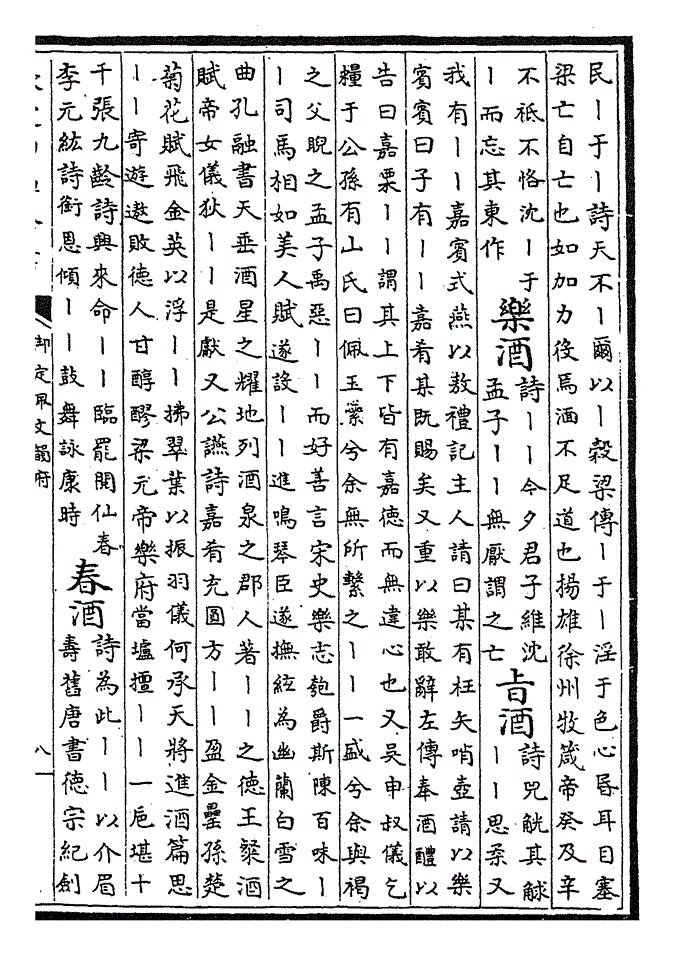 民丨于丨詩天不丨爾以丨穀梁傳丨于丨淫于色心昏耳目塞
梁亡自亡也如加力役焉湎不足道也揚雄徐州牧箴帝癸及辛
不祗不恪沈丨于
丨而忘其東作
樂酒
詩丨丨今夕君子維沈
孟子丨丨無厭謂之亡
旨酒
詩兕觥其觩
丨丨思柔又
我有丨丨嘉賓式燕以敖禮記主人請曰某有枉矢哨壺請以樂
賓賓曰子有丨丨嘉肴某既賜矣又重以樂敢辭左傳奉酒醴以
告曰嘉栗丨丨謂其上下皆有嘉德而無違心也又吳申叔儀乞
糧于公孫有山氏曰佩玉蘂兮余無所繫之丨丨一盛兮余與褐
之父睨之孟子禹惡丨丨而好善言宋史樂志匏爵斯陳百味丨
丨司馬相如美人賦遂設丨丨進鳴琴臣遂撫絃為幽蘭白雪之
曲孔融書天垂酒星之耀地列酒泉之郡人著丨丨之德王粲酒
賦帝女儀狄丨丨是獻又公讌詩嘉肴充圓方丨丨盈金罍孫楚
菊花賦飛金英以浮丨丨拂翠葉以振羽儀何承天將進酒篇思
丨丨寄遊遨敗德人甘醇醪梁元帝樂府當壚擅丨丨一巵堪十
千張九齡詩興來命丨丨臨罷閱仙春
李元紘詩銜恩傾丨丨鼓舞詠康時
春酒
詩為此丨丨以介眉
壽舊唐書德宗紀創
御定佩文韻府
八